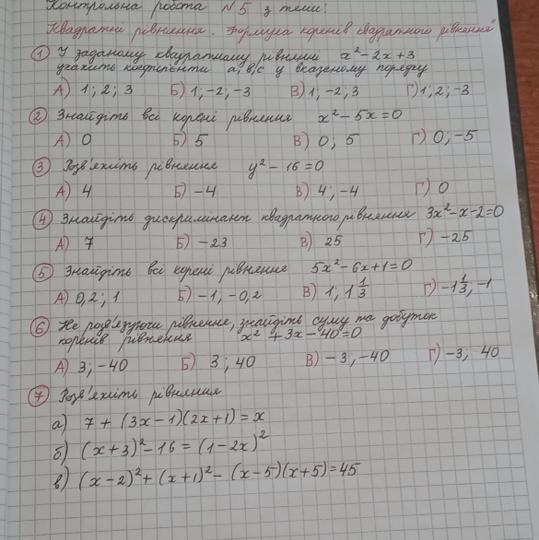 Контрольна робота №5 з теми:
"Квадратні рівняння. Формула коренів квадратного рівняння"
1 У заданому квадратному рівнянні x² - 2x + 3
укажіть коефіцієнти a, b, c у вказаному порядку
А) 1; 2; 3 Б) 1, -2, -3 В) 1, -2, 3 Г) 1, 2, -3
2 Знайдіть всі корені рівняння x² - 5x = 0
А) 0 Б) 5 В) 0; 5 Г) 0, -5
3 Розв'яжіть рівняння y² - 16 = 0
А) 4 Б) -4 В) 4; -4 Г) 0
4 Знайдіть дискримінант квадратного рівняння 3x² - x - 2 = 0
А) 7 Б) -23 В) 25 Г) -25
5 Знайдіть всі корені рівняння 5x² - 6x + 1 = 0
А) 0,2; 1 Б) -1, -0,2 В) 1, 1 1/3 Г) -1 1/3, -1
6 Не розв'язуючи рівняння, знайдіть суму та добуток
коренів рівняння x² + 3x - 40 = 0
А) 3; -40 Б) 3; 40 В) -3, -40 Г) -3, 40
7 Розв'яжіть рівняння
а) 7 + (3x - 1)(2x + 1) = x
б) (x + 3)² - 16 = (1 - 2x)²
в) (x - 2)² + (x + 1)² - (x - 5)(x + 5) = 45